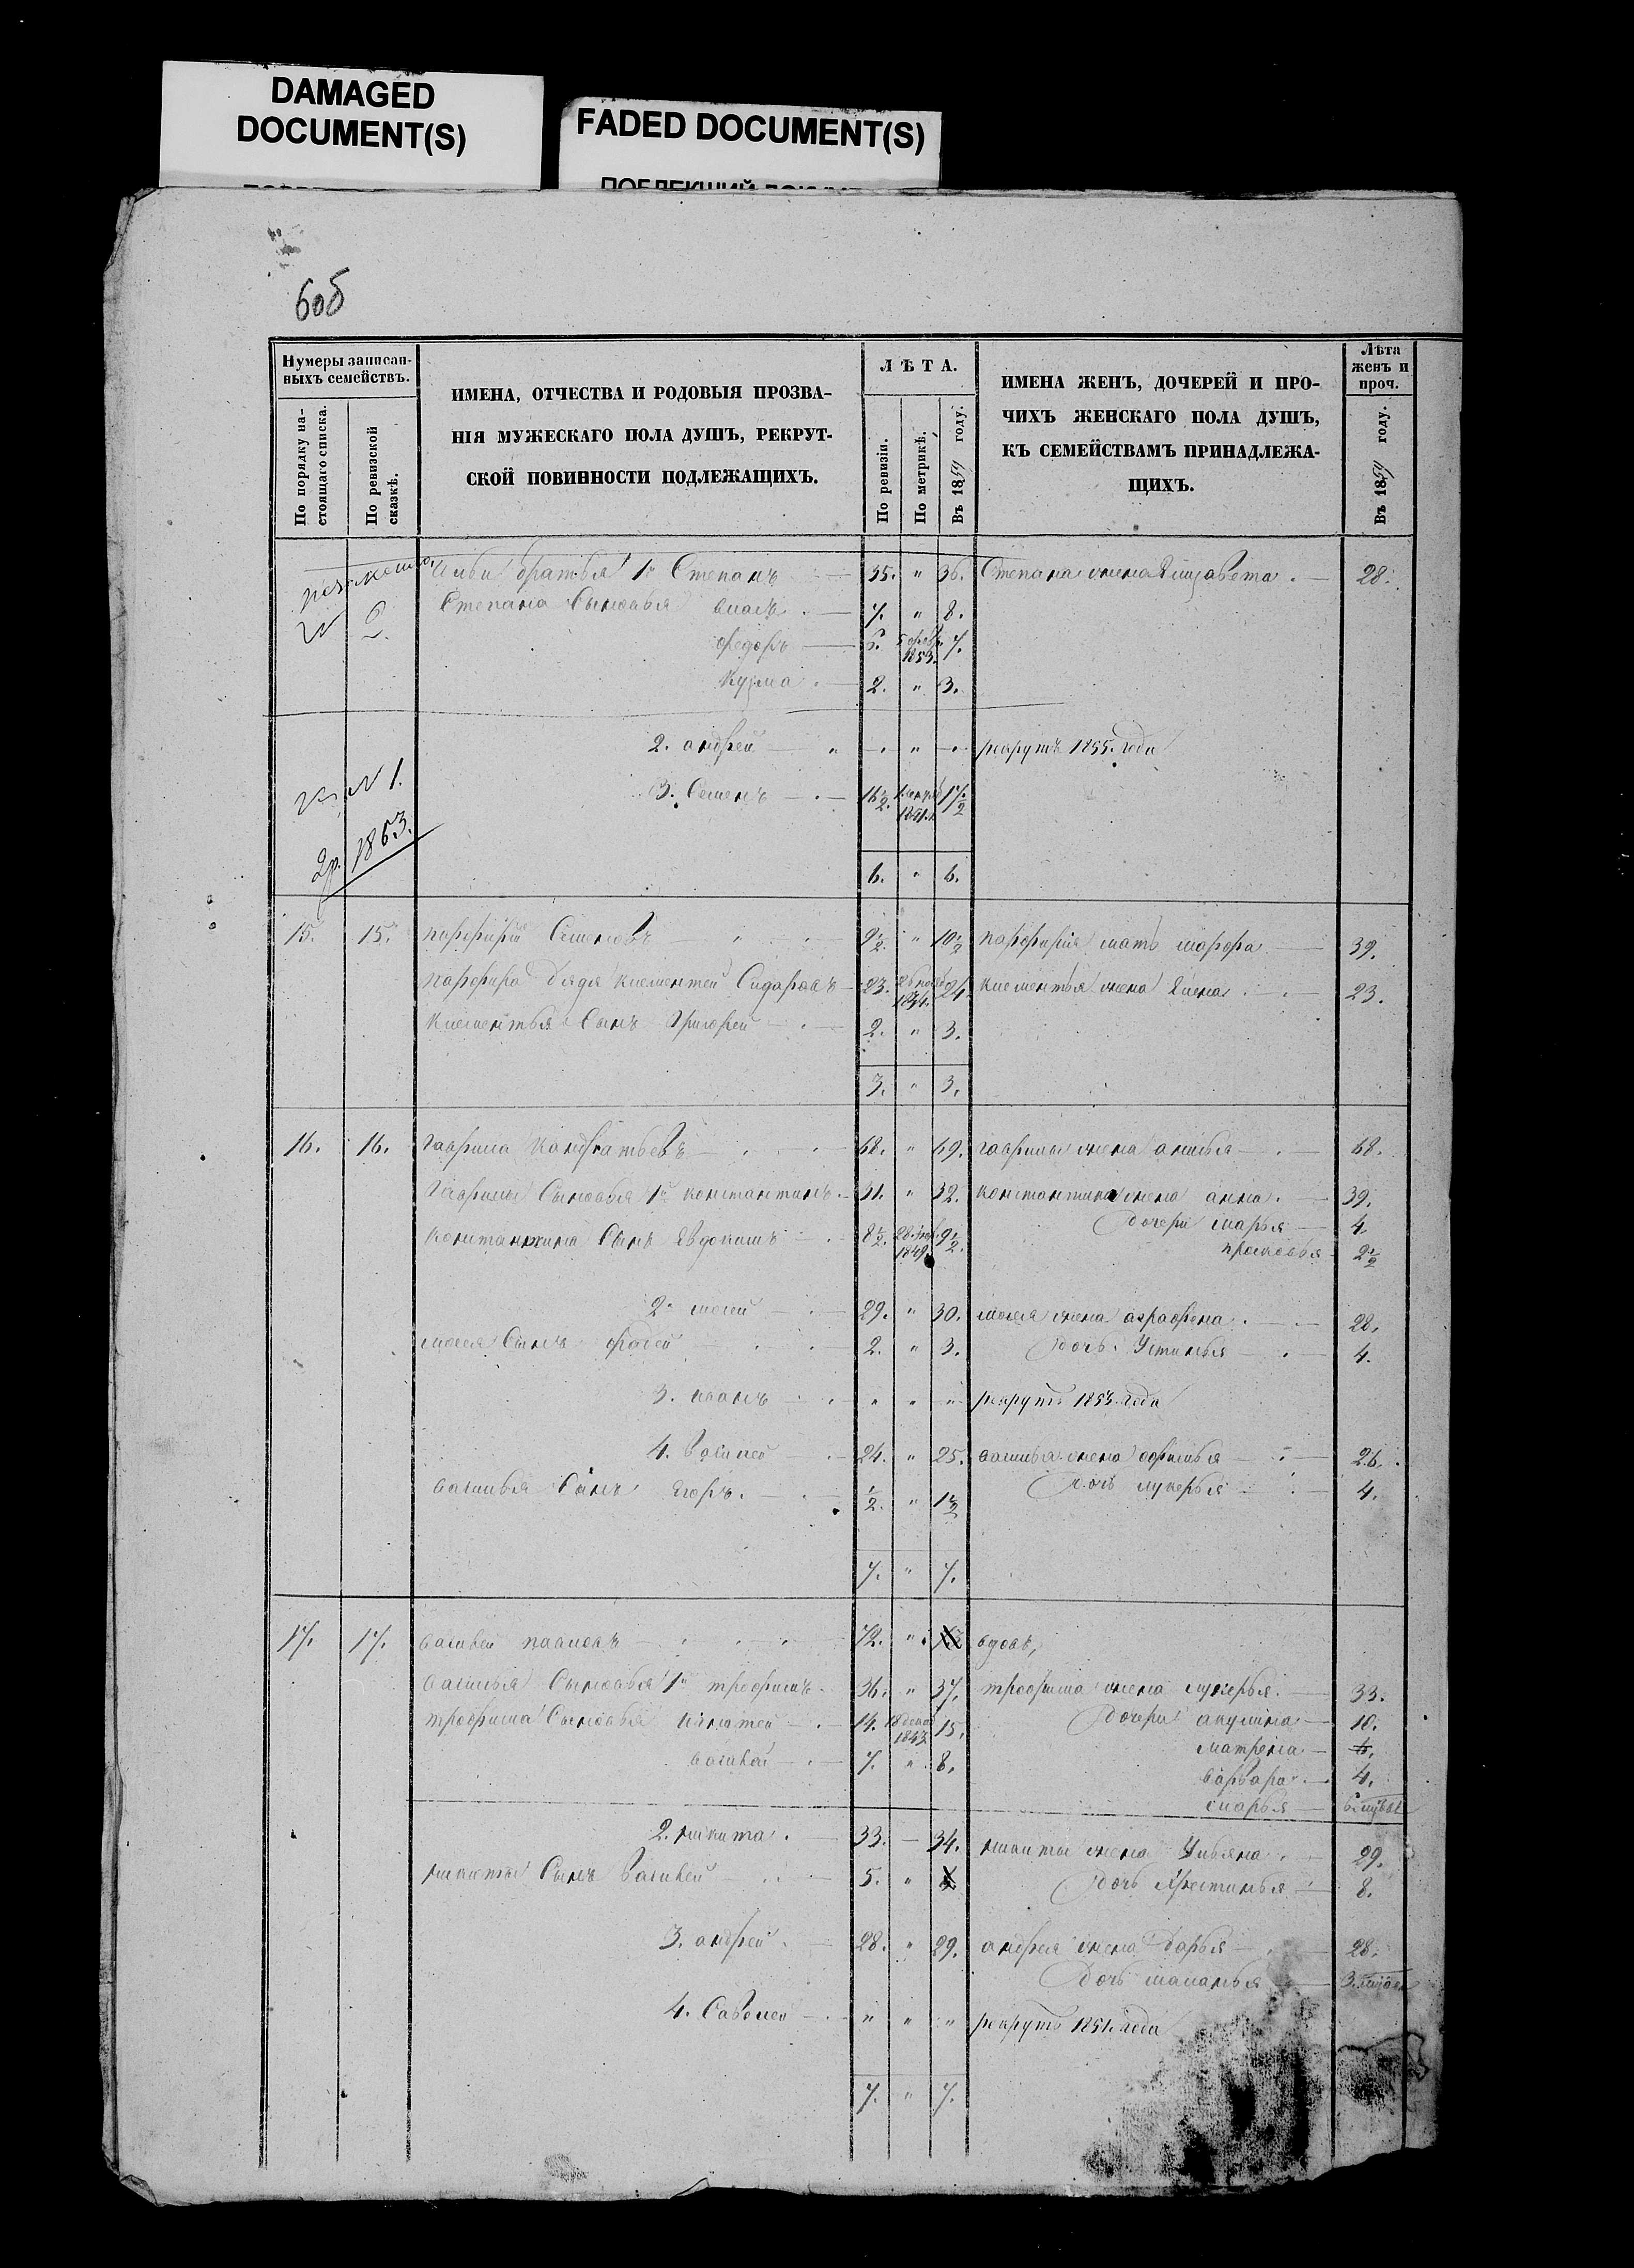 DAMAGED
DOCUMENT(S)
FADED DOCUMENT(S)
60б
Нумеры записан-
ныхъ семействъ.
По порядку на-
стоящаго списка.
По ревизской
сказкѣ.
ИМЕНА, ОТЧЕСТВА И РОДОВЫЯ ПРОЗВА-
НІЯ МУЖЕСКАГО ПОЛА ДУШЪ, РЕКРУТ-
СКОЙ ПОВИННОСТИ ПОДЛЕЖАЩИХЪ.
ЛѢТА.
По ревизіи.
По метрикѣ.
Въ 1859 году.
ИМЕНА ЖЕНЪ, ДОЧЕРЕЙ И ПРО-
ЧИХЪ ЖЕНСКАГО ПОЛА ДУШЪ,
КЪ СЕМЕЙСТВАМЪ ПРИНАДЛЕЖА-
ЩИХЪ.
Лѣта
женъ и
проч.
Въ 1859 году.
братья 1й Степанъ 35. " 36. Степана жена Елизавета. 28.
Степана Сыновья 7. " 8.
федоръ 6. 1853. 7.
Кузма 2. " 3.
2. андрей " " рекрутъ 1855. года
№ 1.
3. Семенъ 16½. 17½
2р. 1863.
6. " 6.
15. 15. парфирій Семеновъ 9½ " 10½ парфирія мать марфа 39.
парфира дядя клементей Сидаровъ 23. 24. клементья жена Елена 23.
Клементья Сынъ Григорей 2. " 3.
3. " 3.
16. 16. гаврила Кандратьевъ 68. " 69. гаврилы жена анисья 68.
Гаврилы Сыновья 1й константинъ 31. " 32. константина жена анна. 39.
дочери марья 4.
Константина Сынъ Евдокимъ 8½. 1849 9½. просковья 2½
2й мосей 29. " 30. мосея жена аграфена. 28.
мосея Сынъ фадей 2. " 3. дочь Устинья 4.
3. иванъ " " " рекрутъ 1853. года
4. Василей 24. " 25. василья жена офимья 26.
василья Сынъ Егоръ. ½. " 1½ дочь лукерья 4.
7. " 7.
17. 17. василей павловъ 72. " вдовъ,
василья Сыновья 1й трофимъ 36. " 37. трофима жена лукерья. 33.
трофима Сыновья игнатей 14. 1843 15. дочери акулина 10.
василей 7. " 8. матрена 6.
варвара 4.
марья
2. никита. 33. — 34. никиты жена Ульяна 29.
никиты Сынъ Василей 5. " дочь Хрестинья 8.
3. андрей. 28. " 29. андрея жена дарья 28.
дочь маланья
4. Савелей " " " рекрутъ 1851. года
7. " 7.